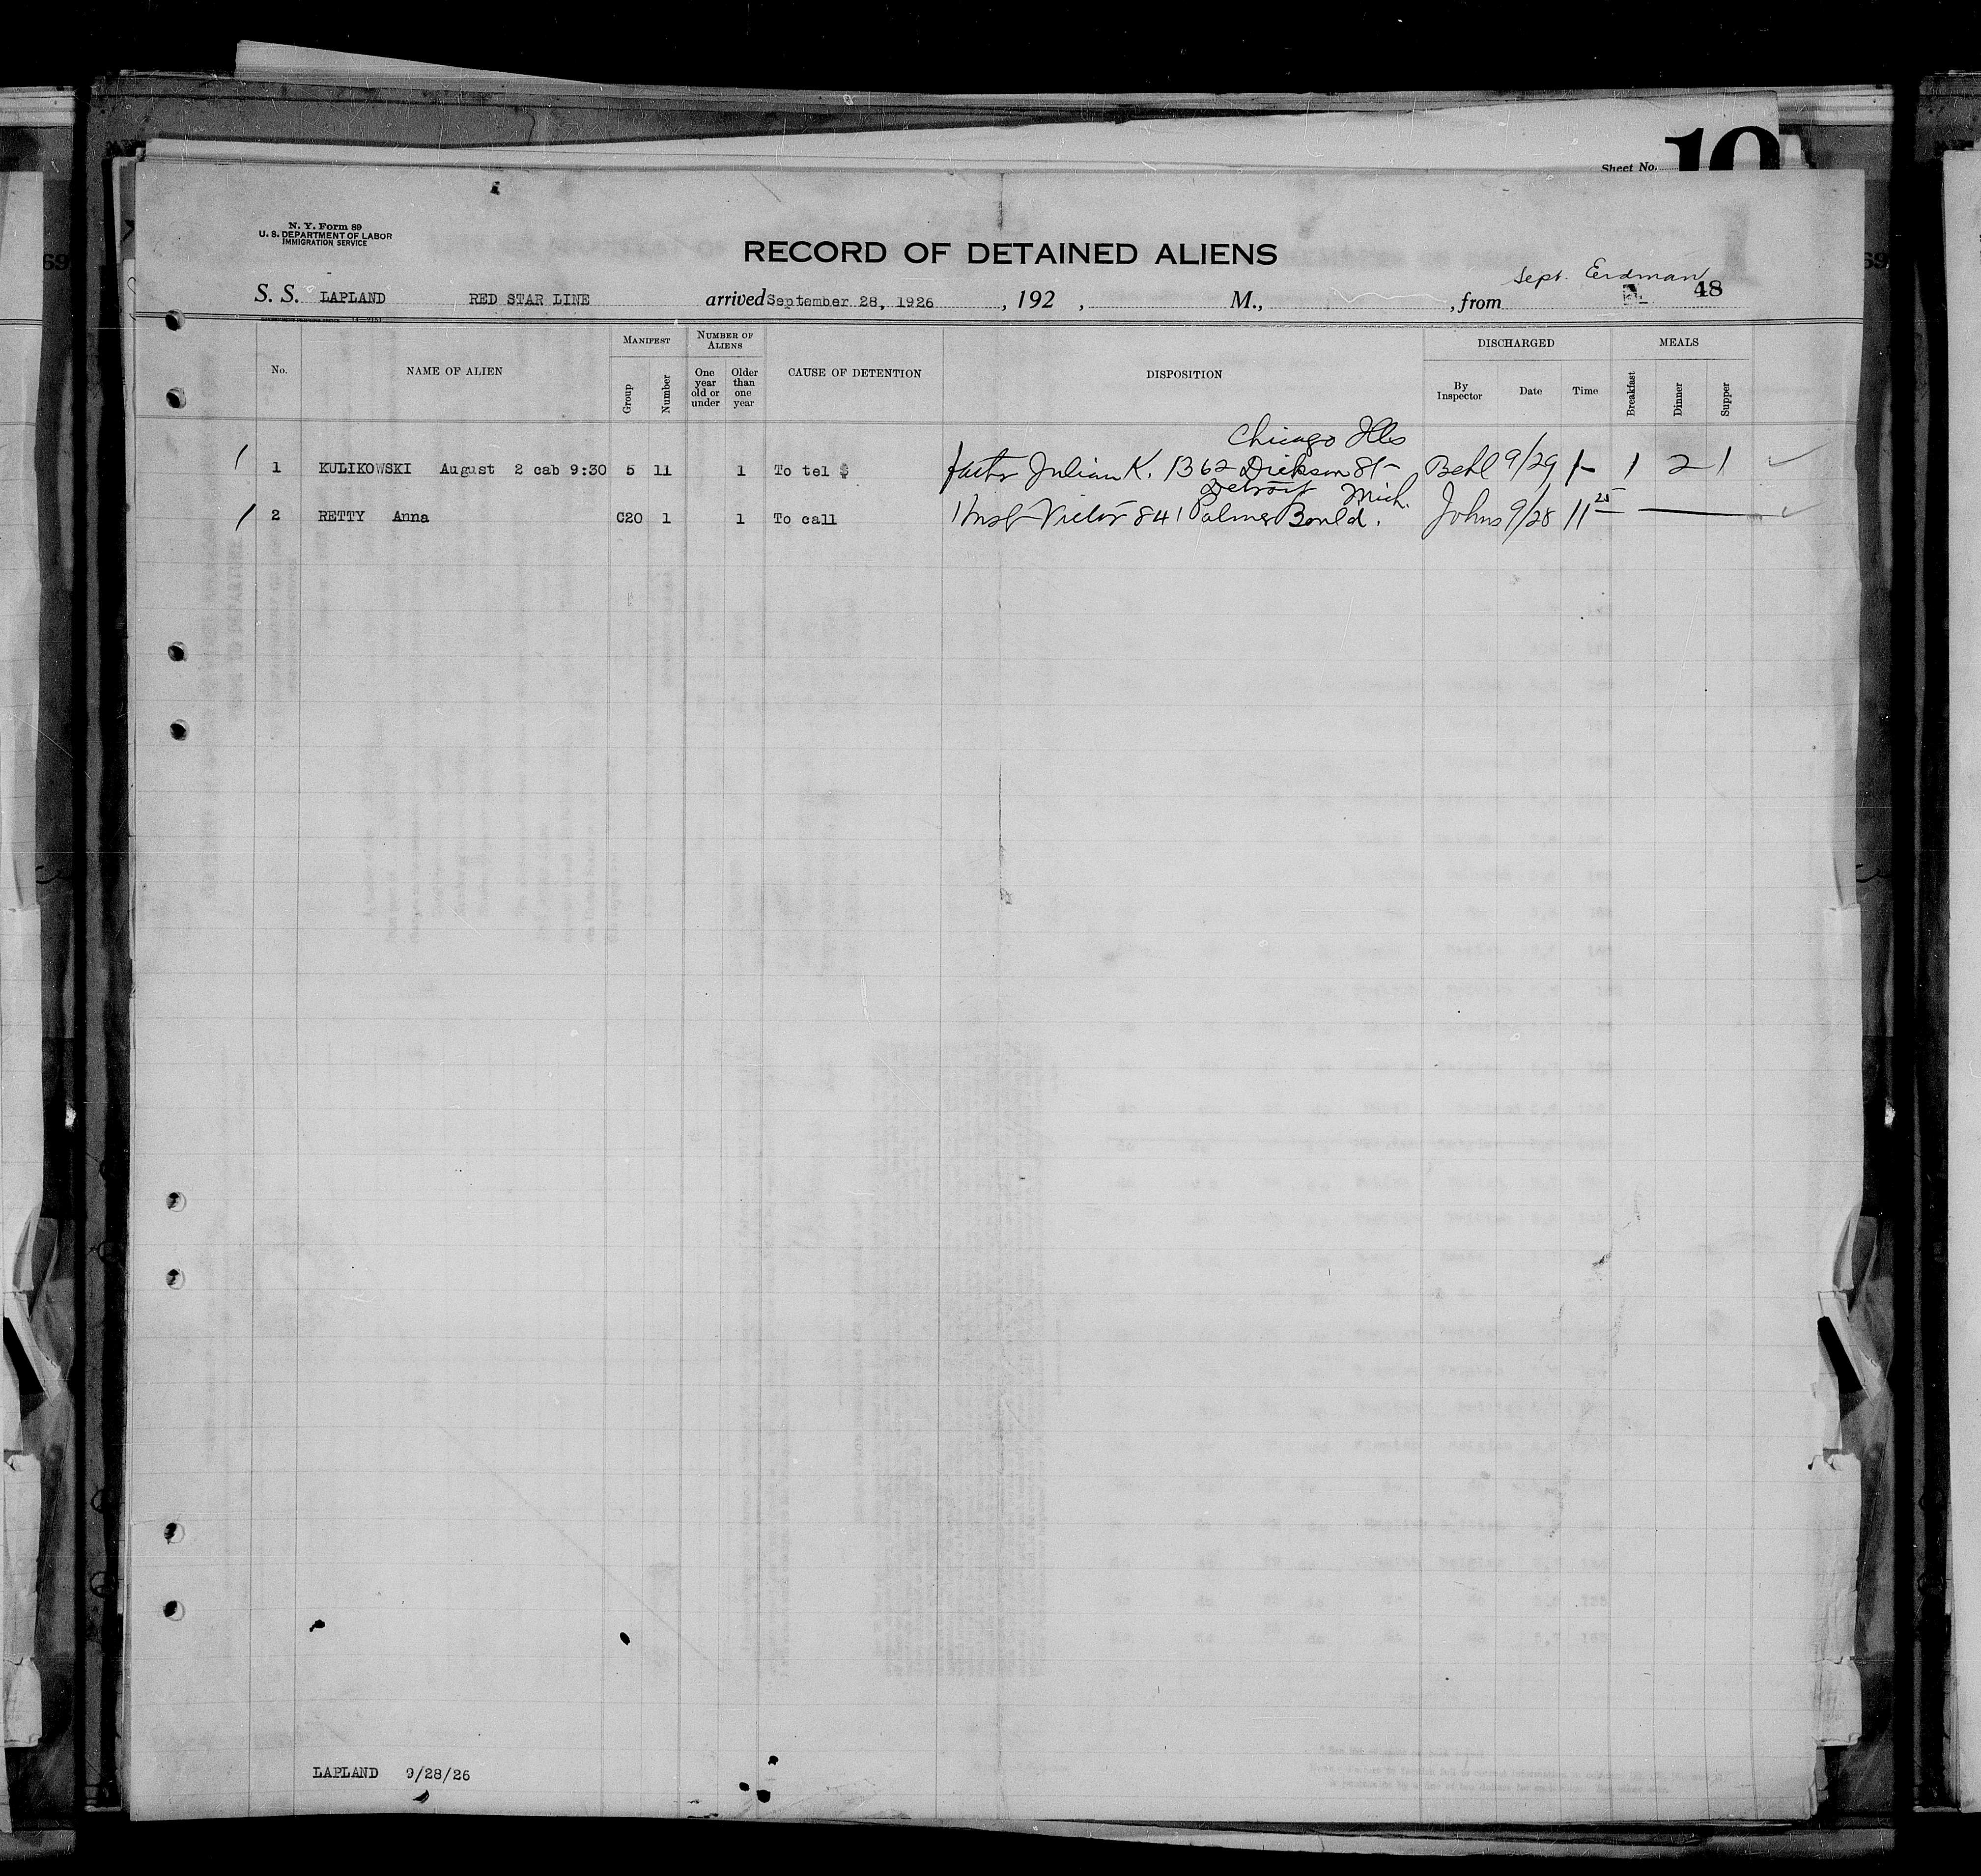 Sheet No. 10
N. Y. Form 89
U. S. DEPARTMENT OF LABOR
IMMIGRATION SERVICE
RECORD OF DETAINED ALIENS
Sept. Erdman
S. S. LAPLAND RED STAR LINE arrived September 28, 1926, 192 , M., , from 48
No. NAME OF ALIEN MANIFEST Group Number NUMBER OF ALIENS One year old or under Older than one year CAUSE OF DETENTION DISPOSITION DISCHARGED By Inspector Date Time MEALS Breakfast Dinner Supper
Chicago Ills
1 KULIKOWSKI August 2 cab 9:30 5 11 1 To tel $ Julian K. 1362 Dickson St Behl 9/29 1- 1 2 1
Detroit Mich.
2 RETTY Anna C20 1 1 To call Husb Victor 841 Palmer Bould. Johns 9/28 11 25
LAPLAND 9/28/26